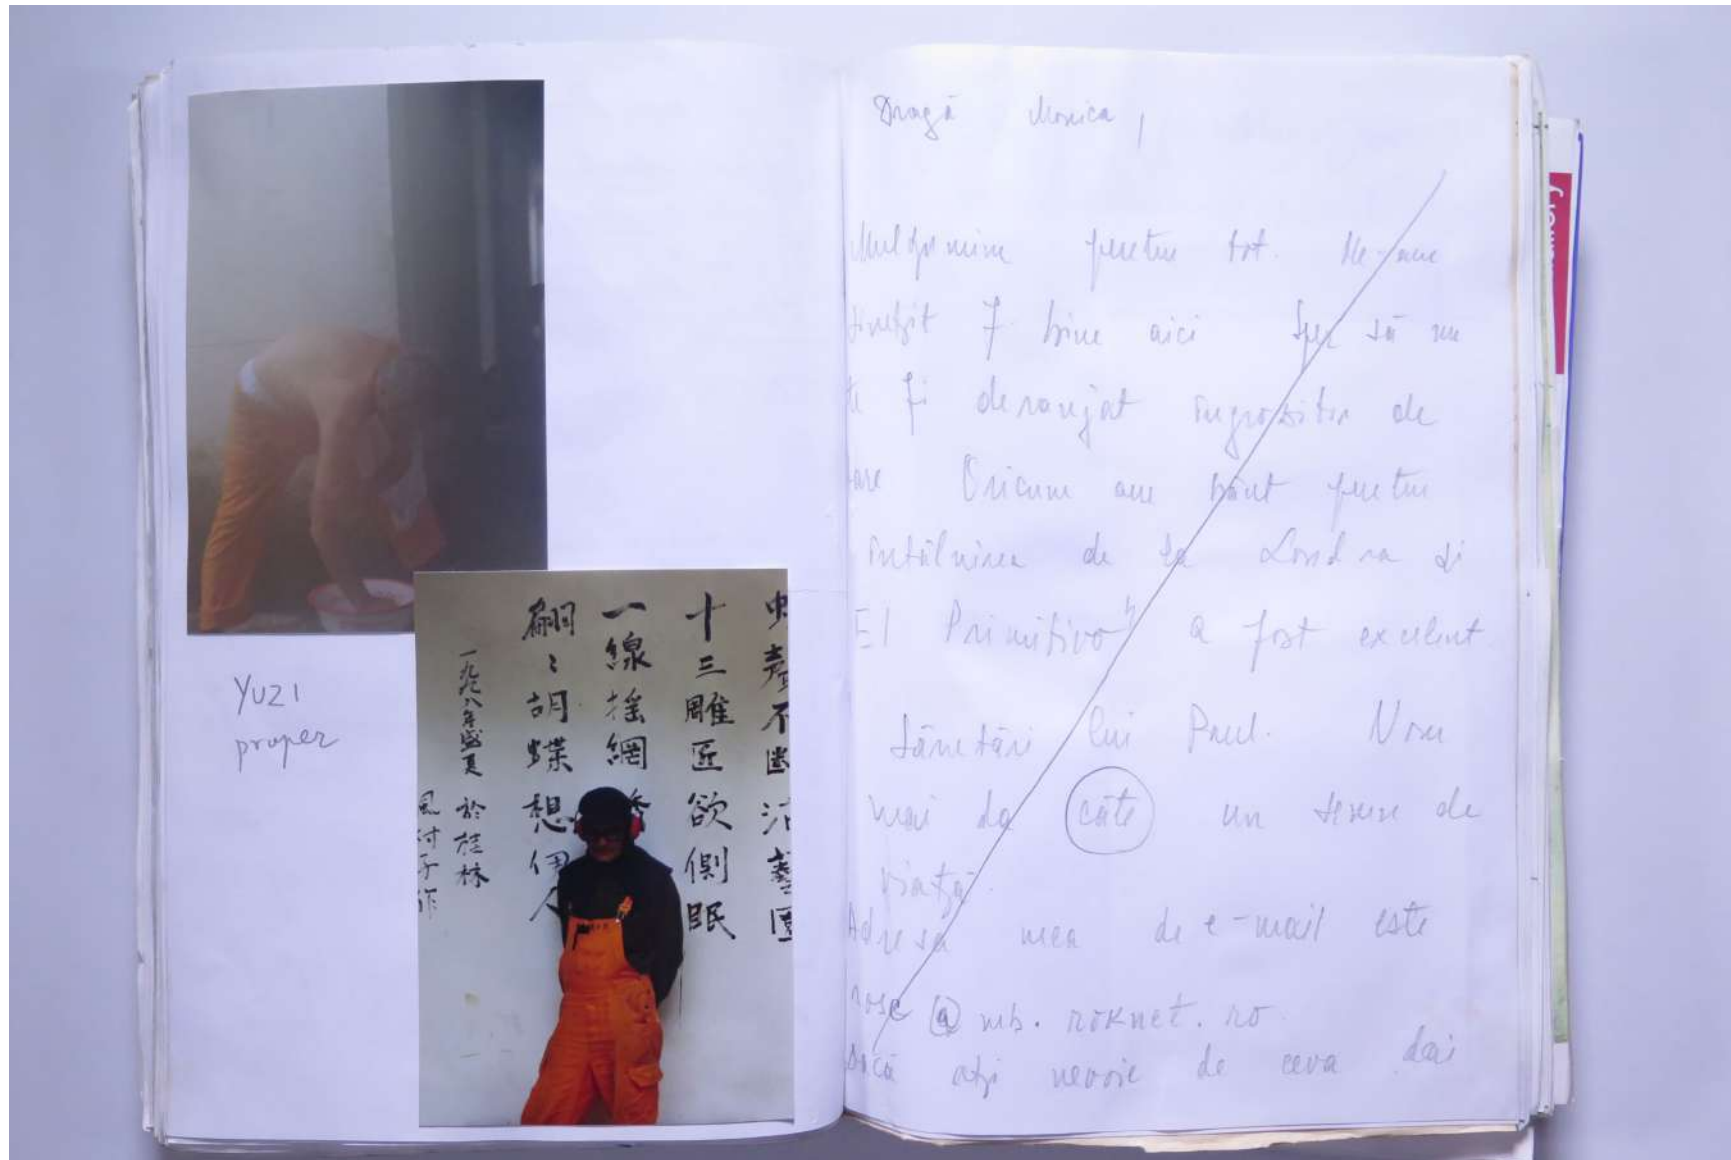 YUZI
proper
虫聲不斷沽藝園
十三雕匠欲側眠
一線搖網
翩〻胡蝶想伊人
一九九八年盛夏 於桂林
風村子作
Dragă Monica,
Mulțumim pentru tot. Ne-am
simțit f. bine aici Sper să nu
te fi deranjat îngrozitor de
tare Oricum am băut pentru
întâlnirea de la Londra și
El Primitivo" a fost excelent.
Sănătări lui Paul. Vom
mai da câte un semn de
viață.
Adresa mea de e-mail este
rose@mb.roknet.ro.
Dacă ați nevoie de ceva dai